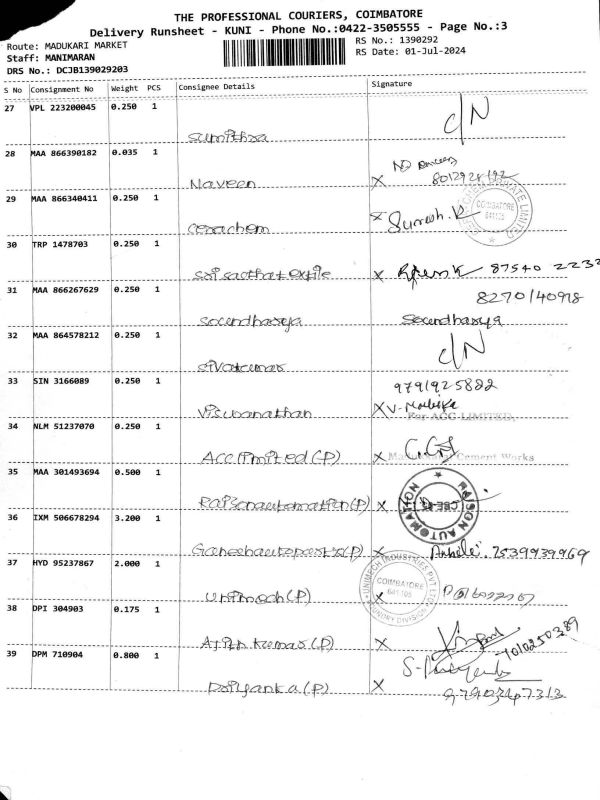 THE PROFESSIONAL COURIERS, COIMBATORE
Delivery Runsheet - KUNI - Phone No.:0422-3505555 - Page No.:3
Route: MADUKARI MARKET RS No.: 1390292
Staff: MANIMARAN RS Date: 01-Jul-2024
DRS No.: DCJB139029203
S No Consignment No Weight PCS Consignee Details Signature
27 VPL 223200045 0.250 1
Sumithra C/N
28 MAA 866390182 0.035 1
Naveen X 8012928192
29 MAA 866340411 0.250 1
cerachem X Suresh.K
COIMBATORE
641 105
30 TRP 1478703 0.250 1
Srisacthatextile X 87540 2232
31 MAA 866267629 0.250 1 8270140918
soundharya Soundharya
32 MAA 864578212 0.250 1
sivakumar C/N
33 SIN 3166089 0.250 1 9791925822
Viswanathan X V-
For ACC LIMITED,
34 NLM 51237070 0.250 1
Acc limited (P) X Cement Works
35 MAA 301493694 0.500 1
Raison automation (P) X RAISON AUTOMATION
36 IXM 506678294 3.200 1
Ganesh autoparts (P) X 7539939969
37 HYD 95237867 2.000 1
Unimech (P) X
UNIMECH INDUSTRIES PVT LTD
COIMBATORE
641 105
FOUNDRY DIVISION
38 DPI 304903 0.175 1
Ajith kumar (P) X
39 DPM 710904 0.800 1
Priyanka (P) X